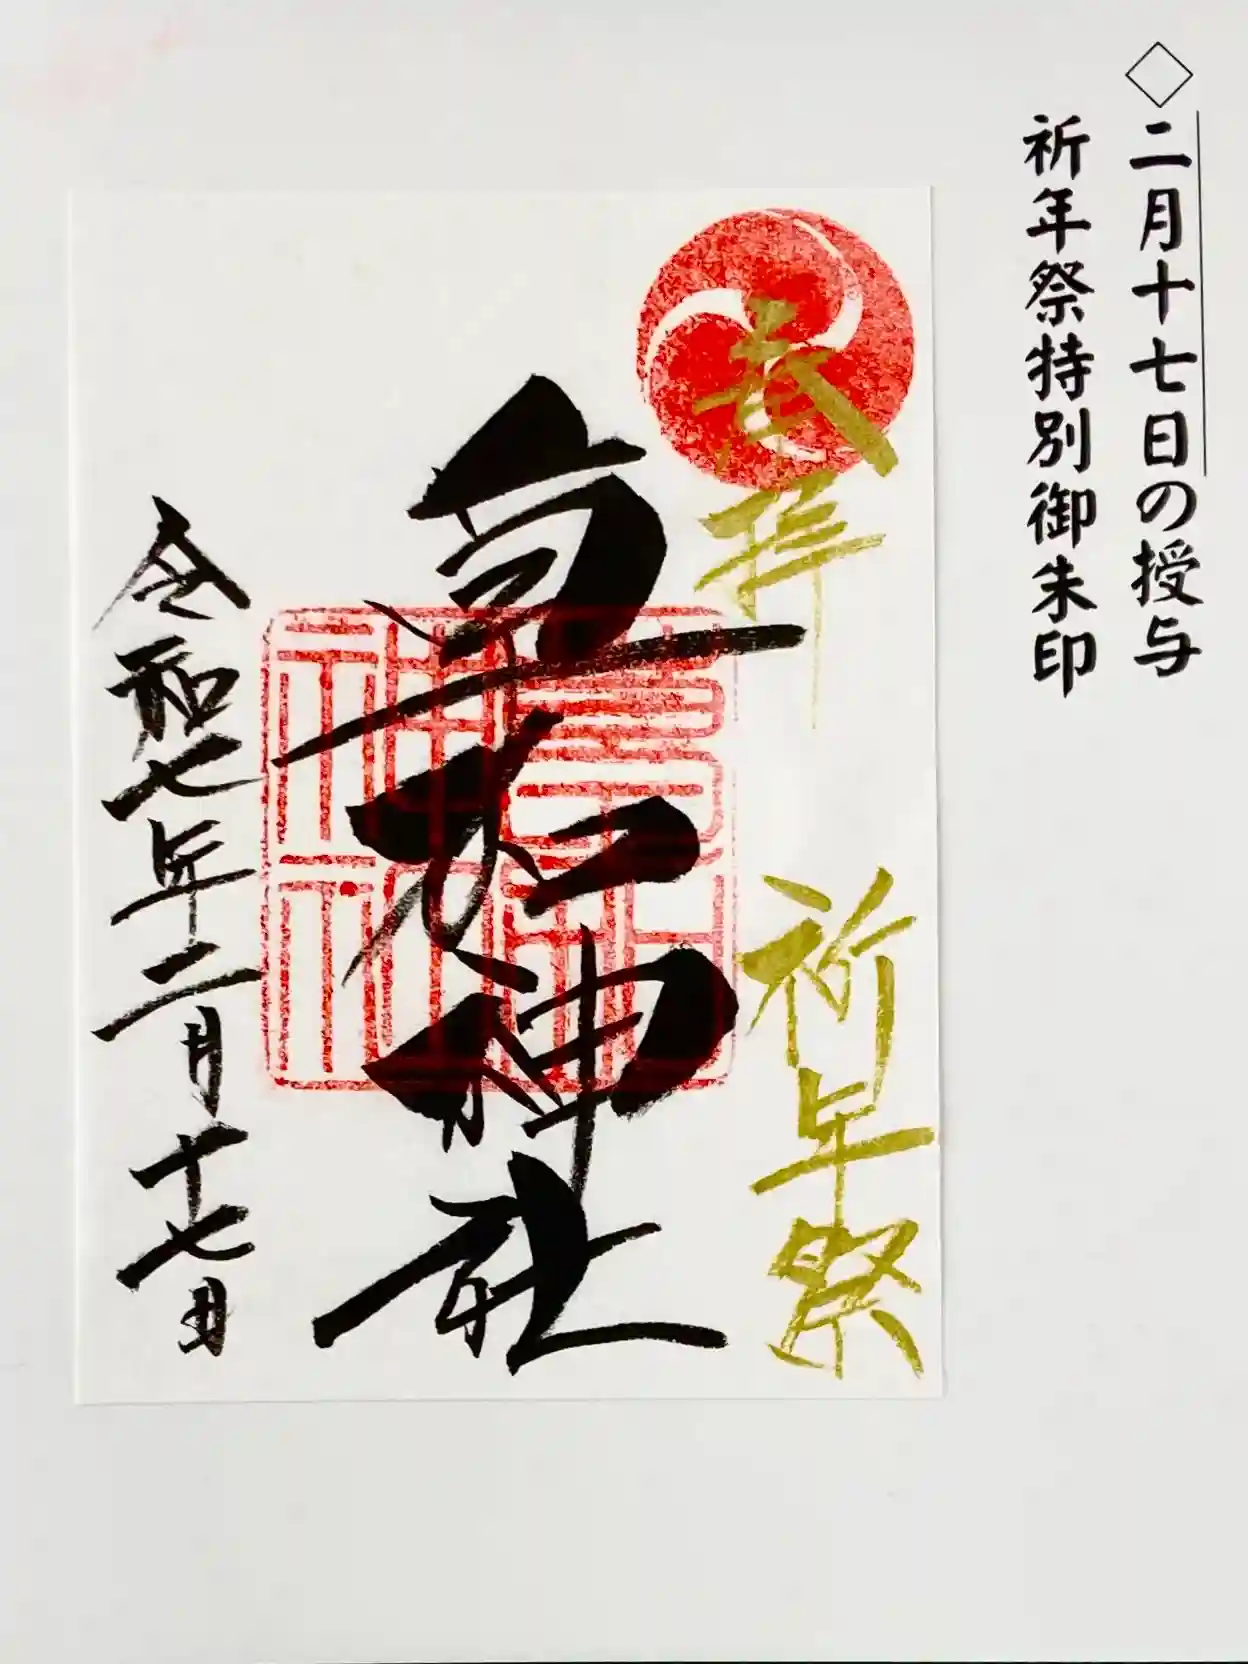 ◇二月十七日の授与
祈年祭特別御朱印
奉拝
祈年祭
神社
令和七年二月十七日